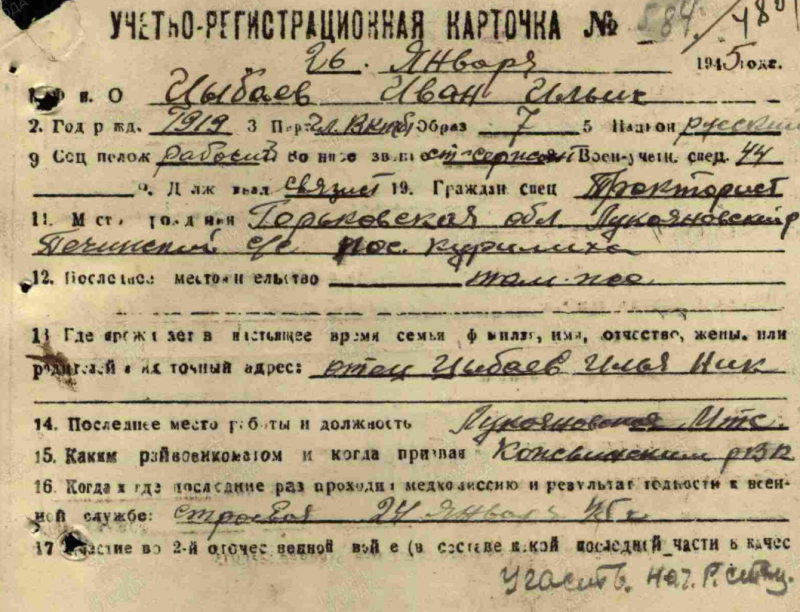 УЧЕТНО-РЕГИСТРАЦИОННАЯ КАРТОЧКА № 584/480
26. Января 1945 годе.
Ф. и. О Цыбаев Иван Ильич
2. Год рожд. 1919 3 Парт чл. ВКПб Образ 7 5 Национ русский
9 Соц полож рабочий Воинское звание ст-сержан Воен-учетн. спец. 44
Должность связист 19. Граждан спец Тракторист
11. Место рождения Горьковская обл Лукояновский р
Печинский с/с пос. Курилиха
12. Последнее местожительство там-же
13 Где проживает в настоящее время семья фамилия, имя, отчество, жены, или
родителей и их точный адрес: отец Цыбаев Илья Ник
14. Последнее место работы и должность Лукояновская Мтс.
15. Каким райвоенкоматом и когда призван РВК
16. Когда и где последние раз проходил медкомиссию и результат годности к воен-
ной службе: строевая 24 января 45 г
17 Участие во 2-й отечественной войне (в составе какой последней части в качес
Участв. нач. Р.